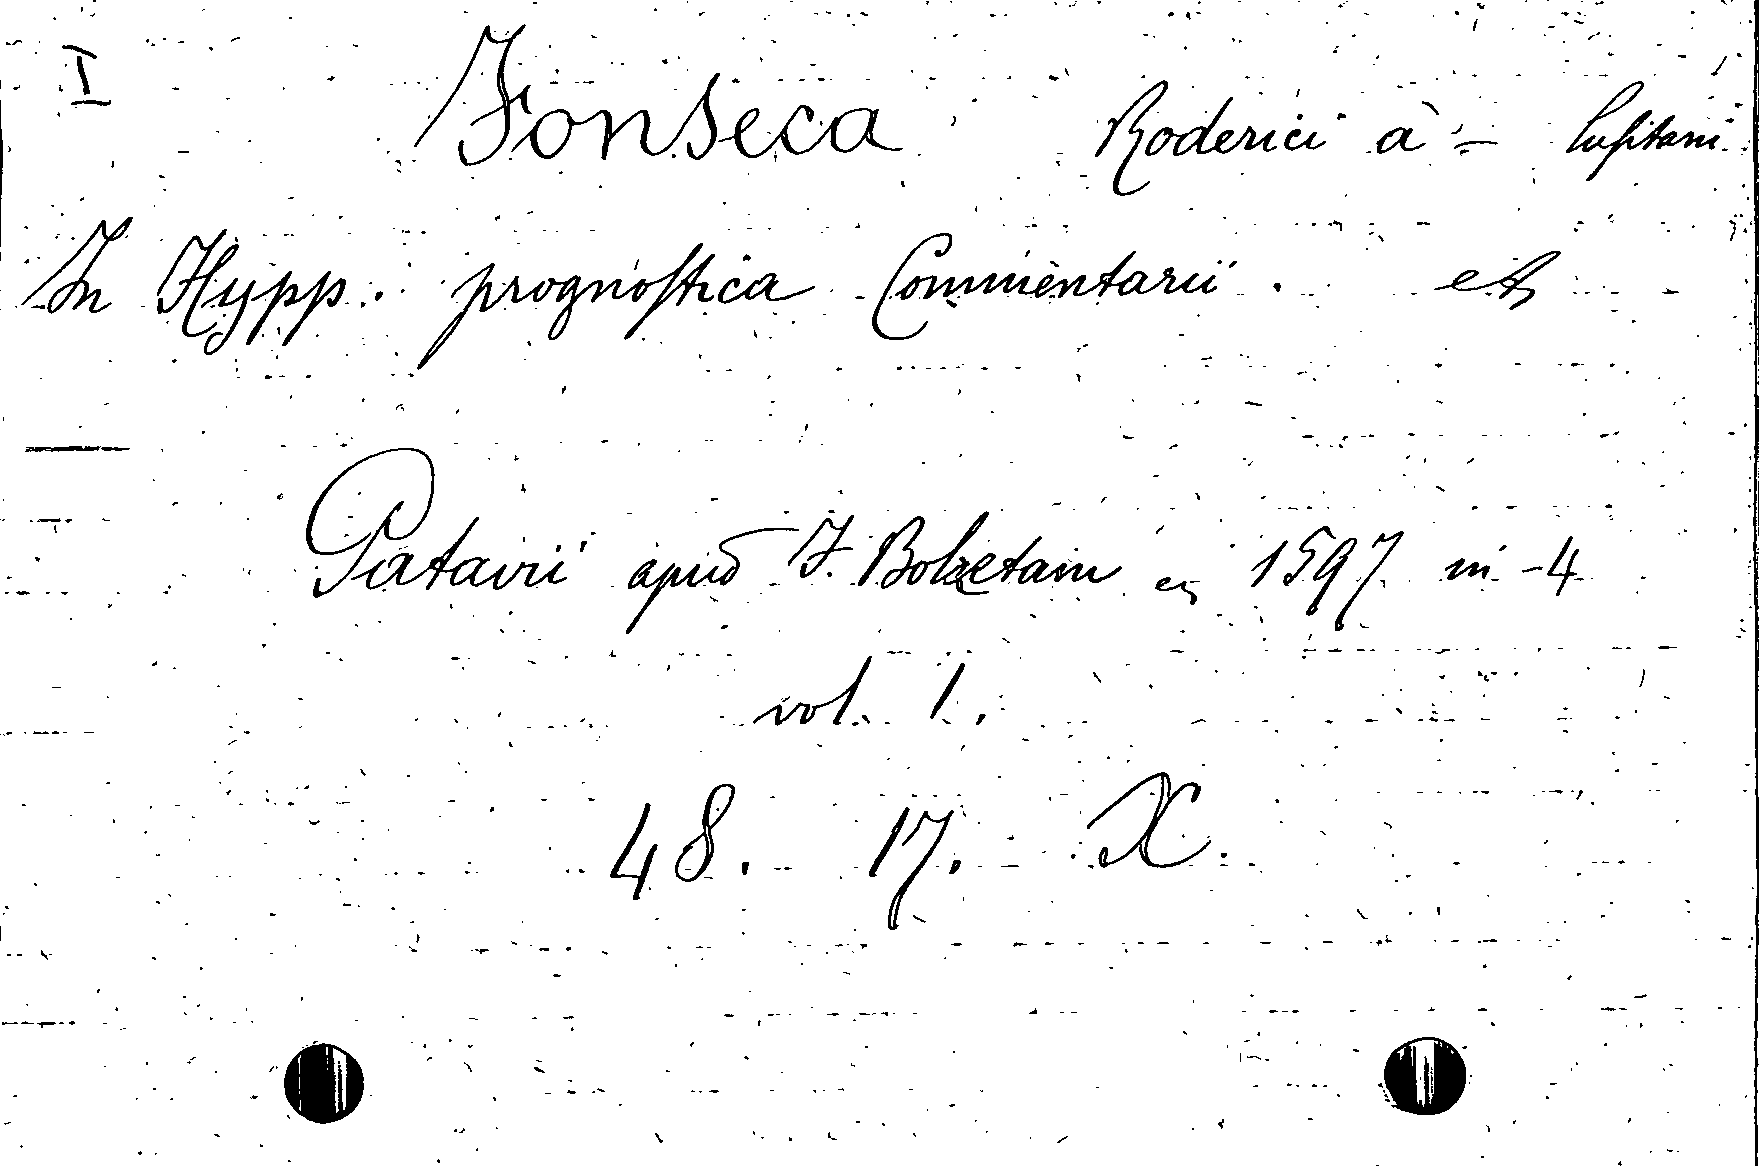 I Fonseca Roderici à - Luſitani
In Hypp. prognoſtica Commentarii. et
Patavii apud J. Bolzetam 1597 in -4
vol. 1.
48. 17. X.